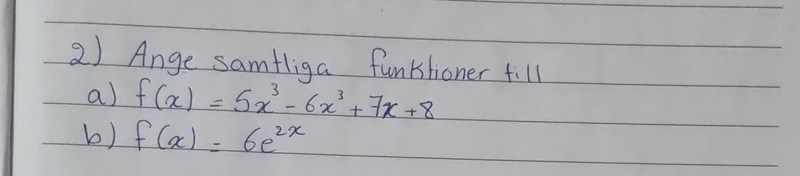 2) Ange samtliga funktioner till
a) f(x) = 5x³ - 6x³ + 7x + 8
b) f(x) = 6e²ˣ